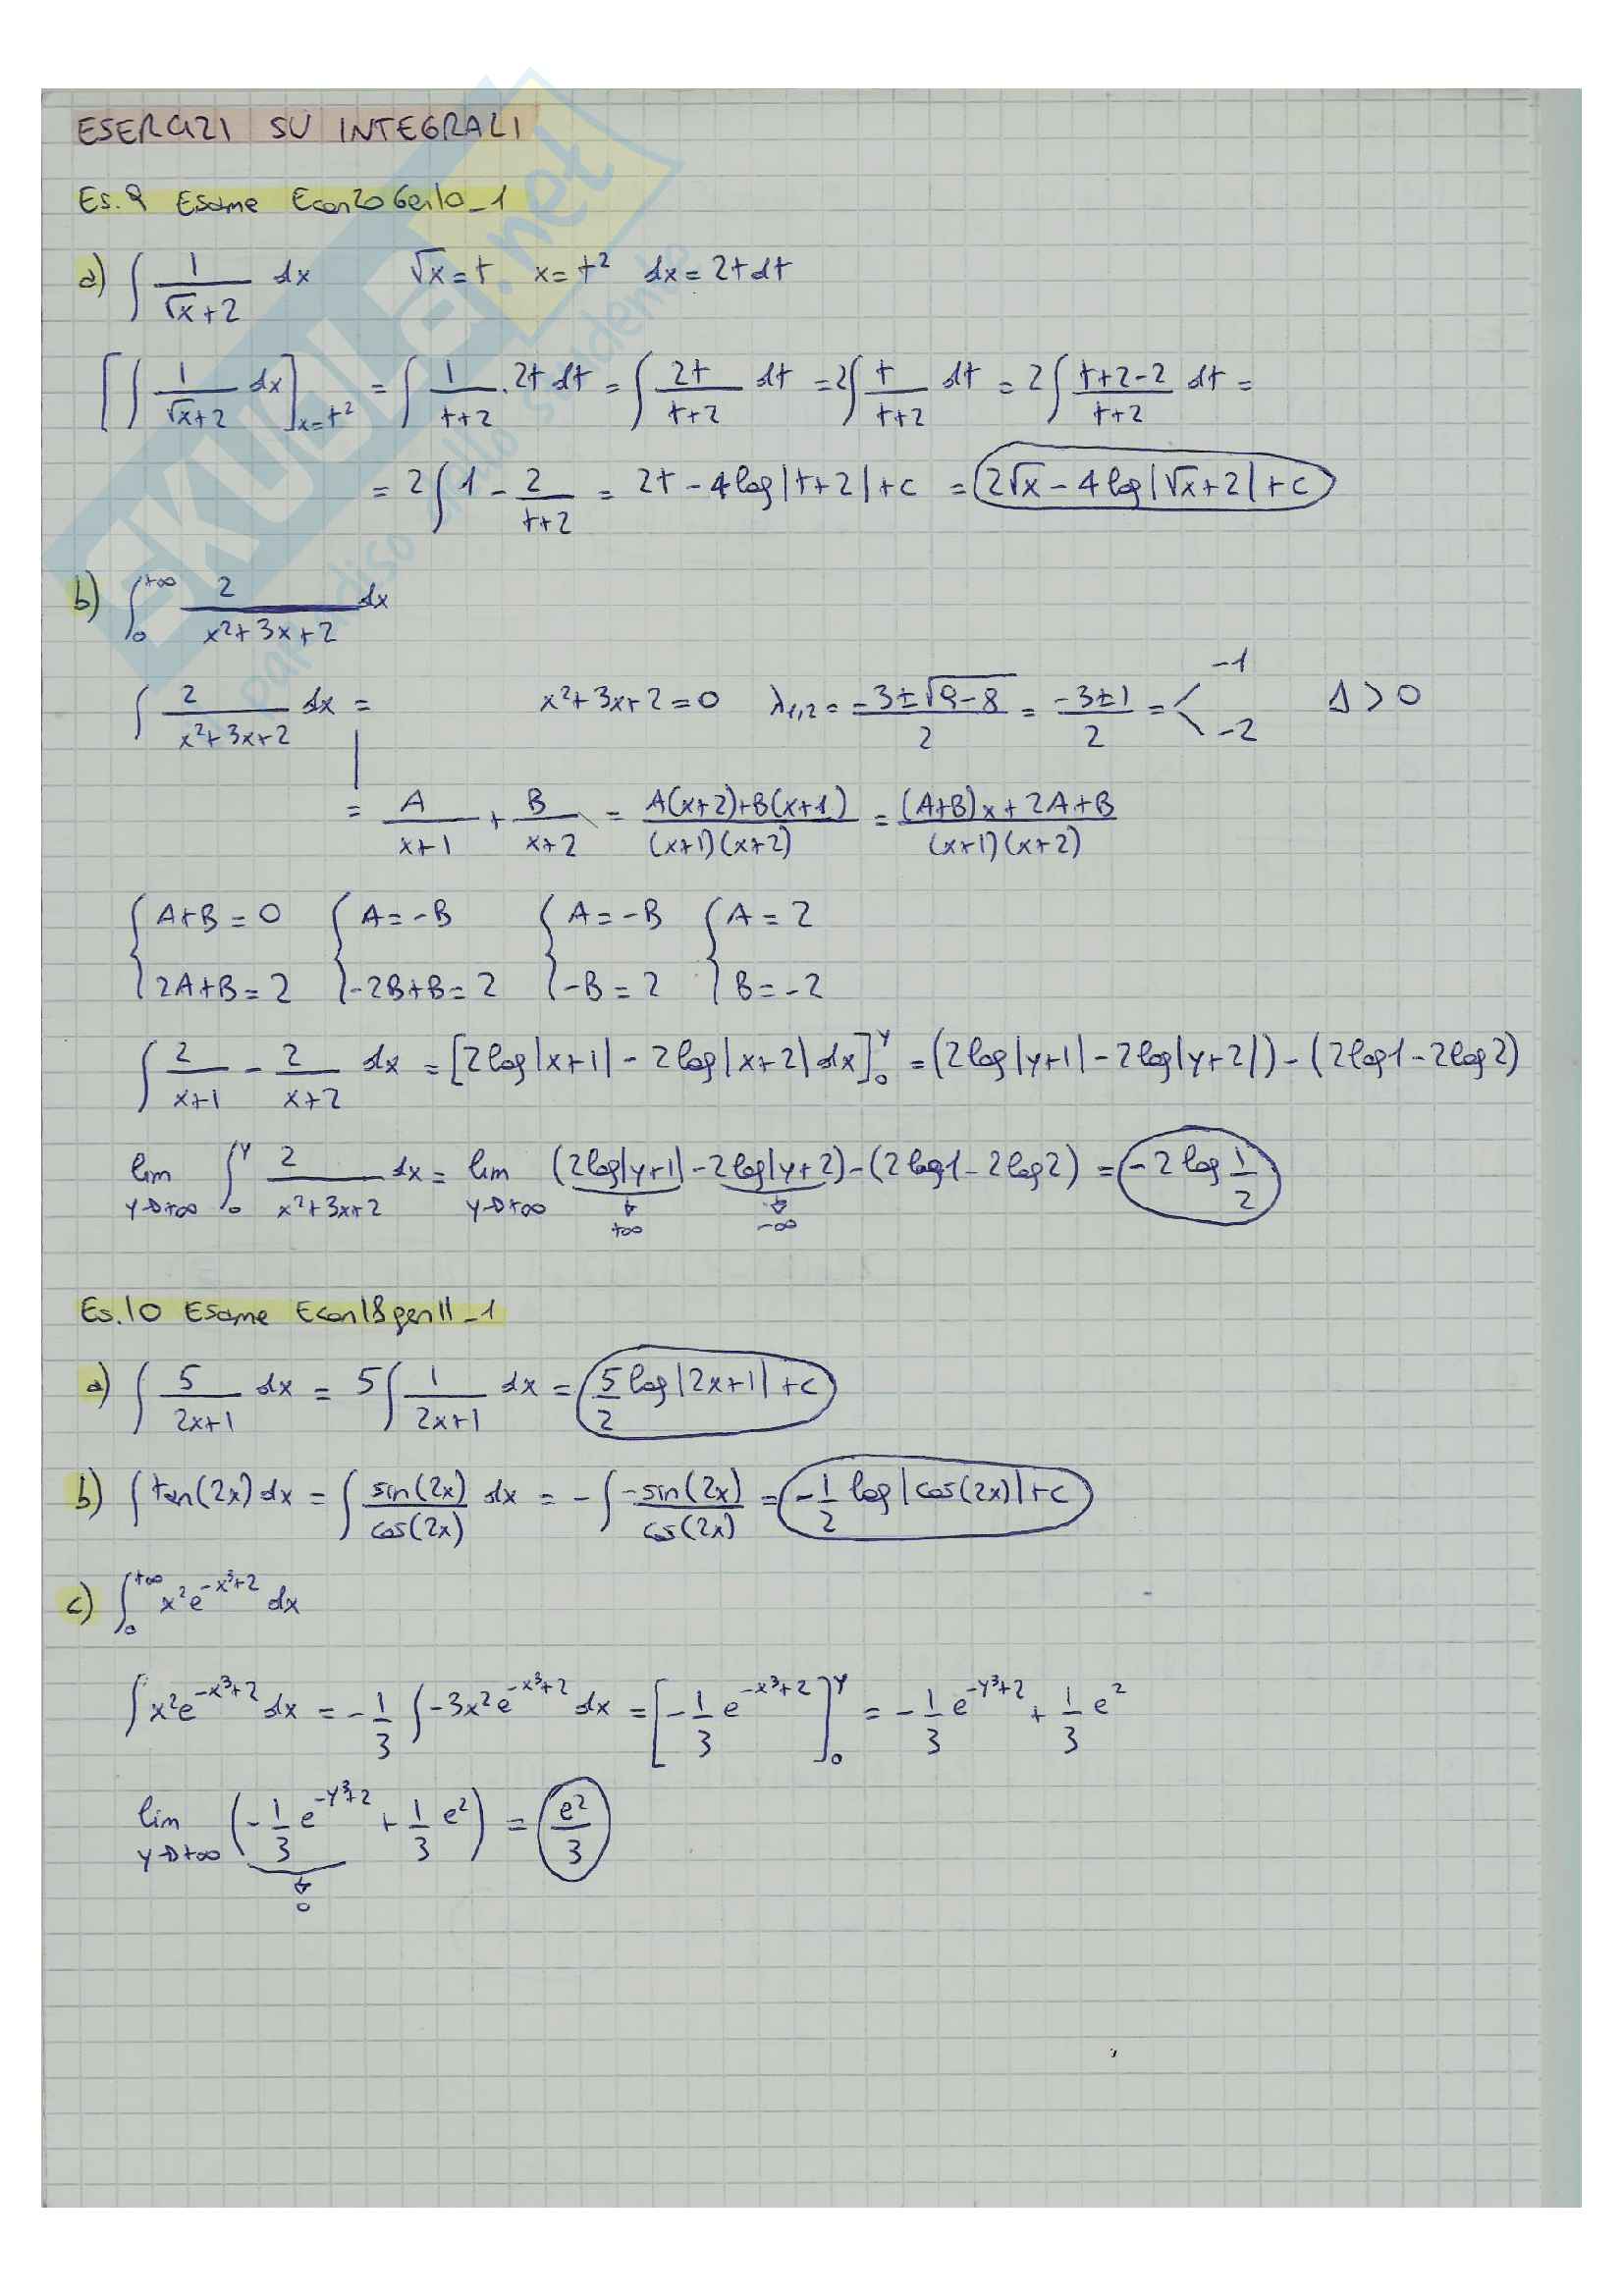 ESERCIZI SU INTEGRALI
Es. 9 Esame Econ20Gen10_1
a) ∫ 1/(√x+2) dx √x = t x = t² dx = 2t dt
[∫ 1/(√x+2) dx]x=t² = ∫ 1/(t+2) · 2t dt = ∫ 2t/(t+2) dt = 2∫ t/(t+2) dt = 2∫ (t+2-2)/(t+2) dt =
= 2∫ 1 - 2/(t+2) = 2t - 4log|t+2| + c = 2√x - 4log|√x+2| + c
b) ∫₀^+∞ 2/(x²+3x+2) dx
∫ 2/(x²+3x+2) dx = x²+3x+2 = 0 λ1,2 = (-3±√9-8)/2 = (-3±1)/2 = < -1 -2 Δ > 0
= A/(x+1) + B/(x+2) = (A(x+2)+B(x+1))/((x+1)(x+2)) = ((A+B)x+2A+B)/((x+1)(x+2))
{A+B = 0 {A = -B {A = -B {A = 2
2A+B = 2 -2B+B = 2 -B = 2 B = -2
∫ 2/(x+1) - 2/(x+2) dx = [2log|x+1| - 2log|x+2| dx]₀^y = (2log|y+1| - 2log|y+2|) - (2log1 - 2log2)
lim y→+∞ ∫₀^y 2/(x²+3x+2) dx = lim y→+∞ (2log|y+1| - 2log|y+2) - (2log1 - 2log2) = -2log 1/2
+∞ -∞
Es. 10 Esame Econ18gen11_1
a) ∫ 5/(2x+1) dx = 5∫ 1/(2x+1) dx = 5/2 log|2x+1| + c
b) ∫ tan(2x) dx = ∫ sin(2x)/cos(2x) dx = -∫ -sin(2x)/cos(2x) = -1/2 log|cos(2x)| + c
c) ∫₀^+∞ x²e^(-x³+2) dx
∫ x²e^(-x³+2) dx = -1/3 ∫ -3x²e^(-x³+2) dx = [-1/3 e^(-x³+2)]₀^y = -1/3 e^(-y³+2) + 1/3 e²
lim y→+∞ (-1/3 e^(-y³+2) + 1/3 e²) = e²/3
0
SKUOLA.net
paradiso dello studente